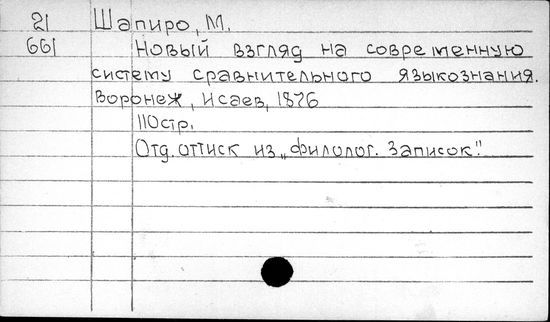 21 Шапиро, М.
661 Новый взгляд на современную
систему сравнительного языкознания.
Воронеж, Исаев, 1876
110стр.
Отд. оттиск из „Филолог. Записок."